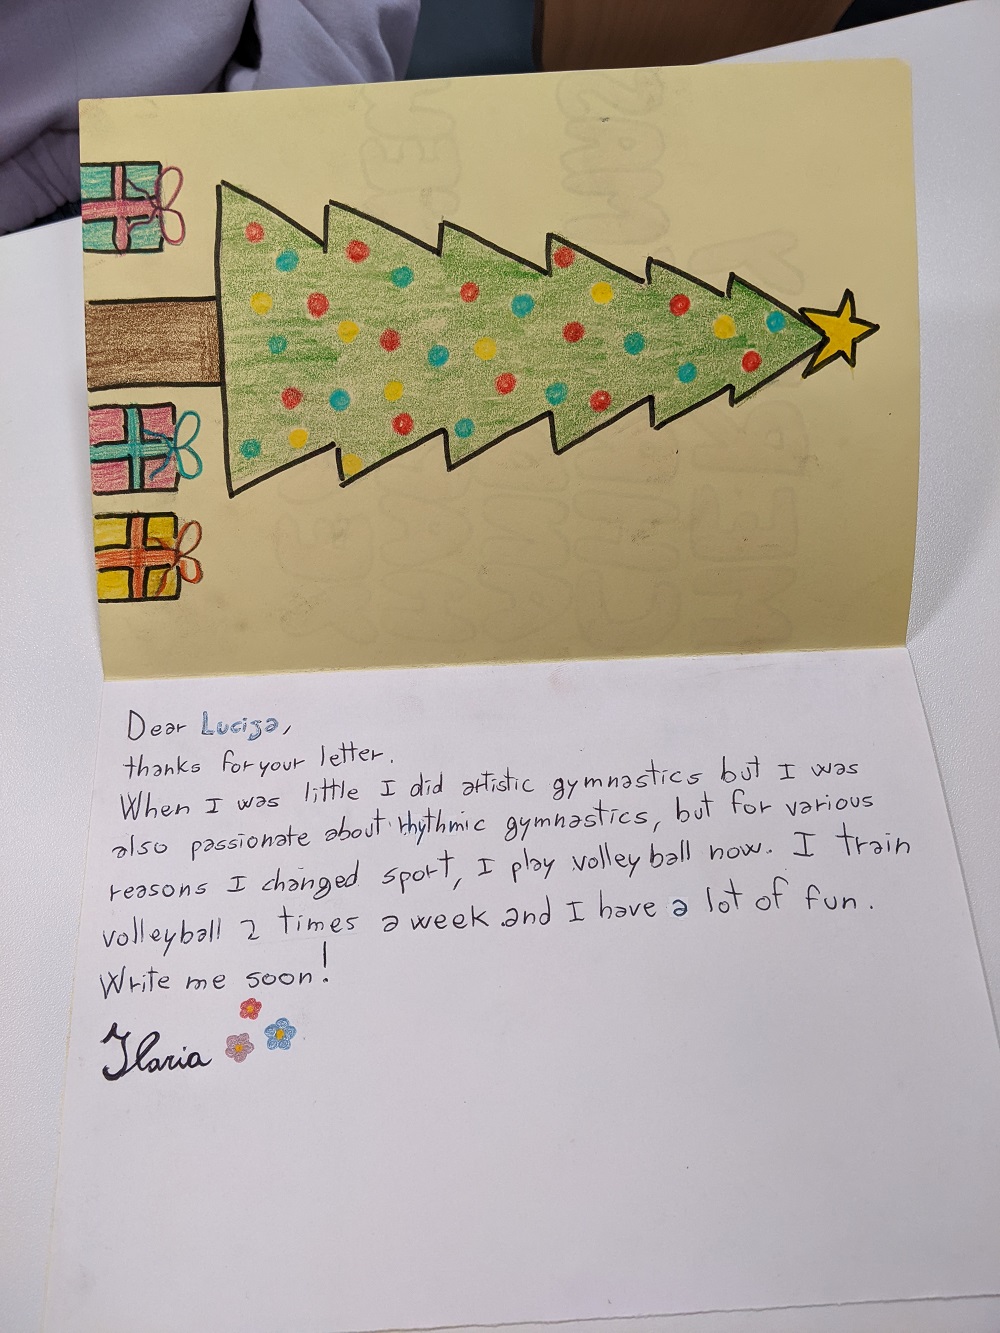 Dear Lucija,
thanks for your letter.
When I was little I did artistic gymnastics but I was
also passionate about rhythmic gymnastics, but for various
reasons I changed sport, I play volleyball now. I train
volleyball 2 times a week and I have a lot of fun.
Write me soon!
Ilaria